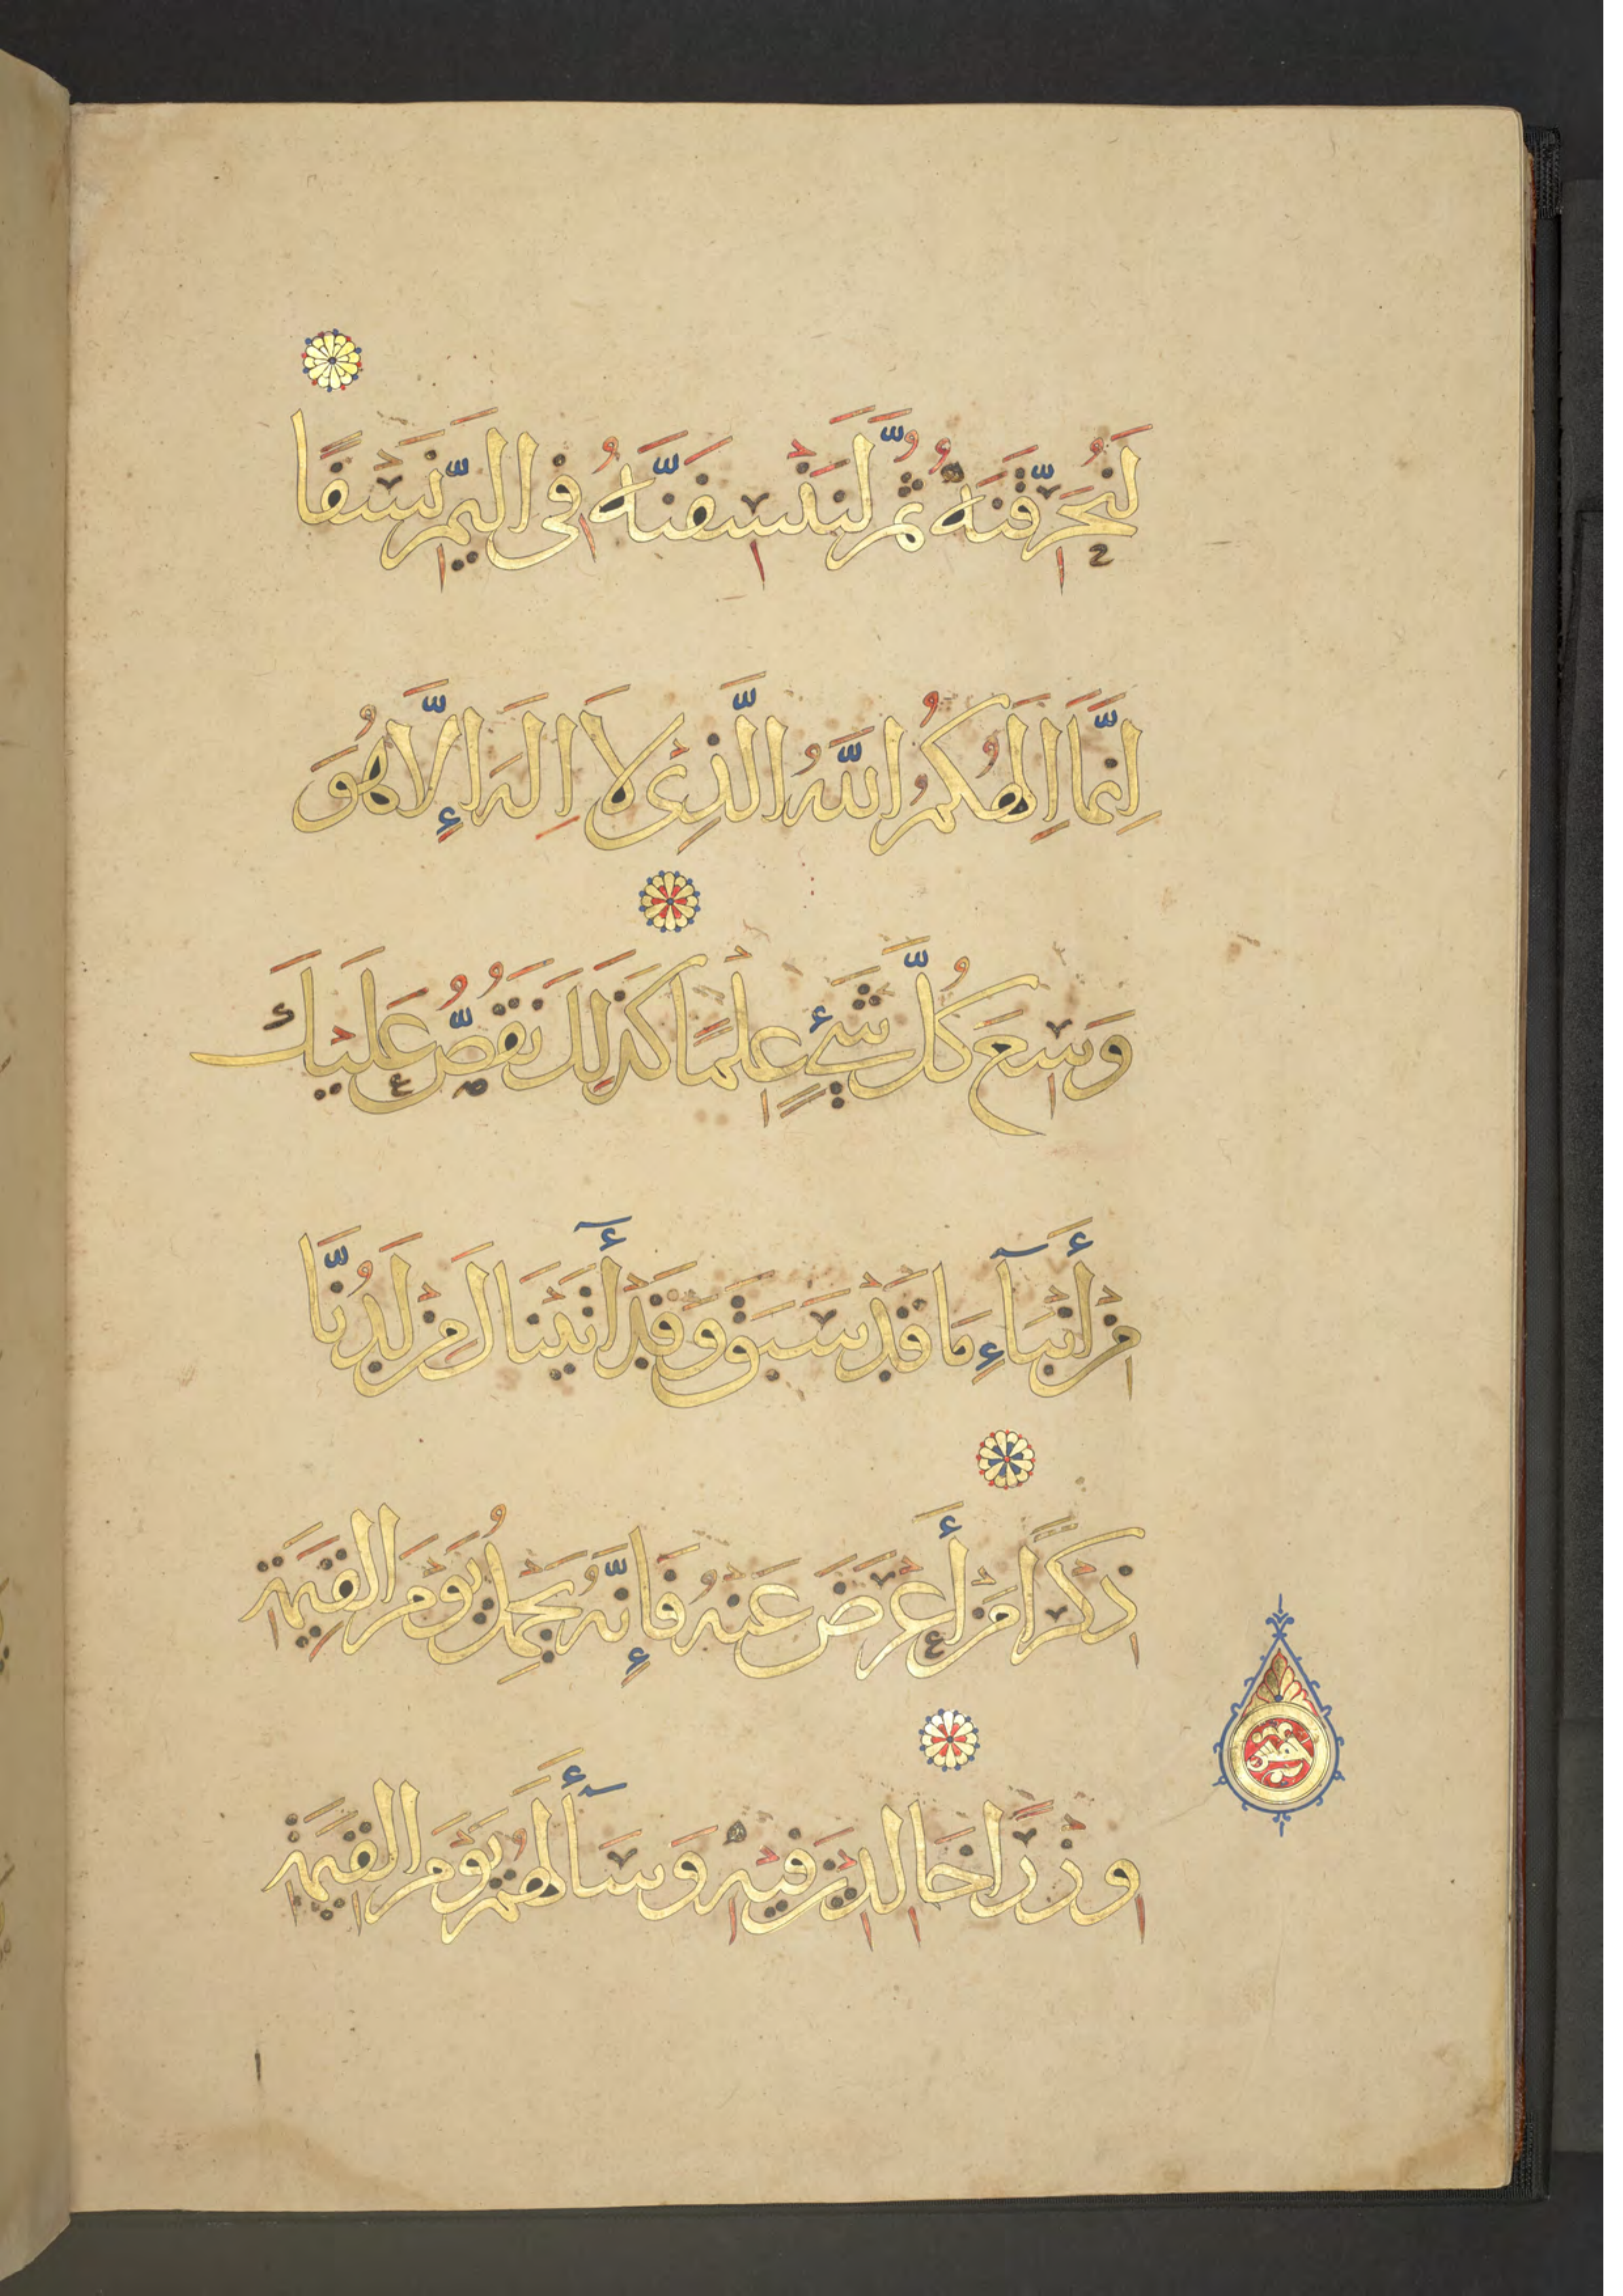 لَنُحَرِّقَنَّهُ ثُمَّ لَنَنْسِفَنَّهُ فِي الْيَمِّ نَسْفًا
اِنَّمَا اِلَهُكُمُ اللَّهُ الَّذِي لَا اِلَهَ إِلَّا هُوَ
وَسِعَ كُلَّ شَيْءٍ عِلْمًا كَذَلِكَ نَقُصُّ عَلَيْكَ
مِنْ أَنْبَآءِ مَا قَدْ سَبَقَ وَقَدْ أٓتَيْنَاكَ مِنْ لَدُنَّا
ذِكْرًا مَنْ أَعْرَضَ عَنْهُ فَإِنَّهُ يَحْمِلُ يَوْمَ الْقِيَمَةِ
وِزْرًا خَالِدِينَ فِيهِ وَسَأٓءَ لَهُمْ يَوْمَ الْقِيَمَةِ